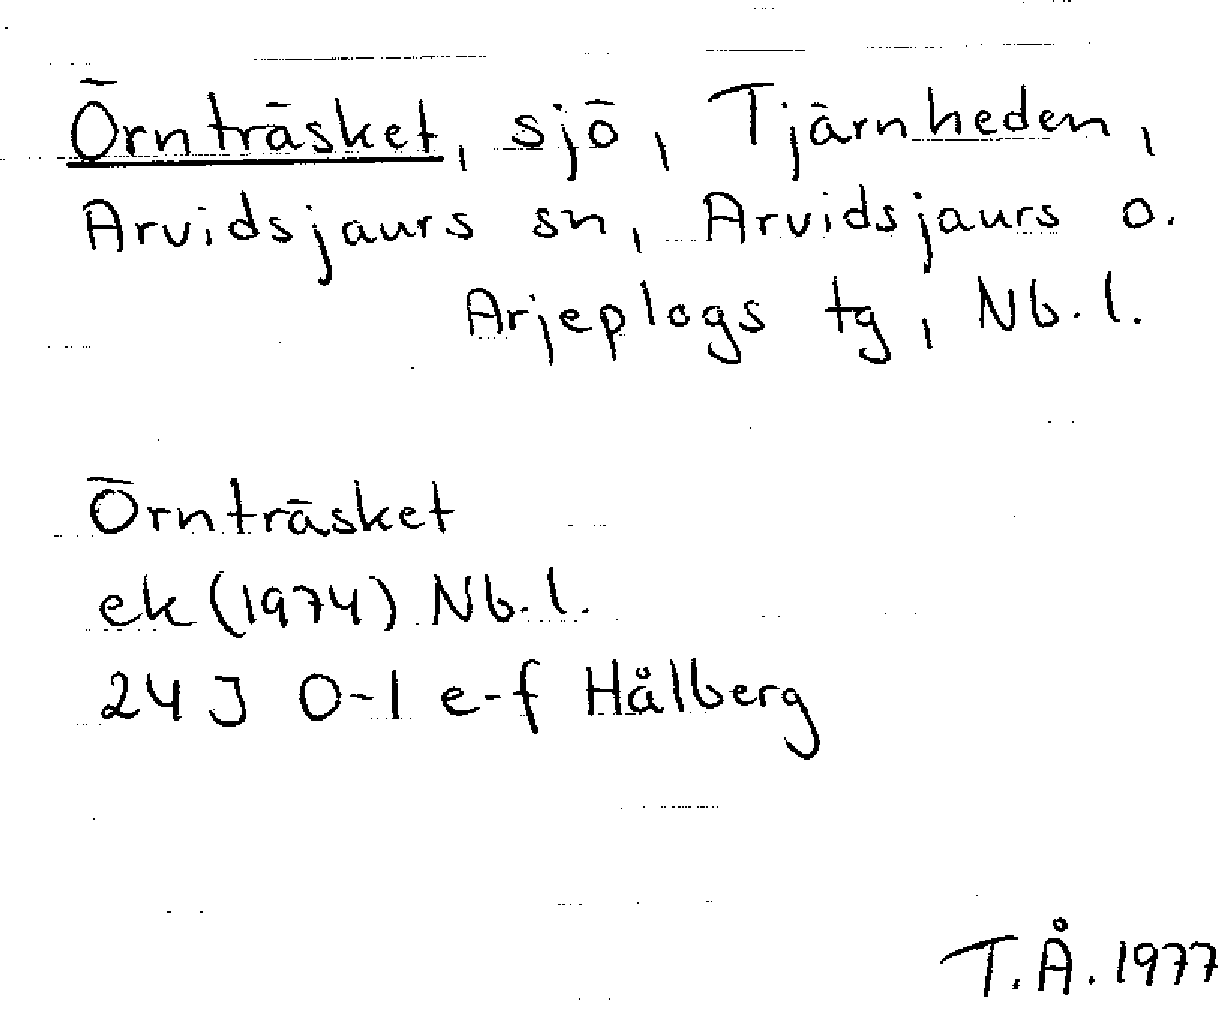 Örnträsket, sjö, Tjärnheden,
Arvidsjaurs sn, Arvidsjaurs o.
Arjeplogs tg, Nb.l.
Örnträsket
ek (1974) Nb.l.
24J 0-1 e-f Hålberg
T.Å. 1977